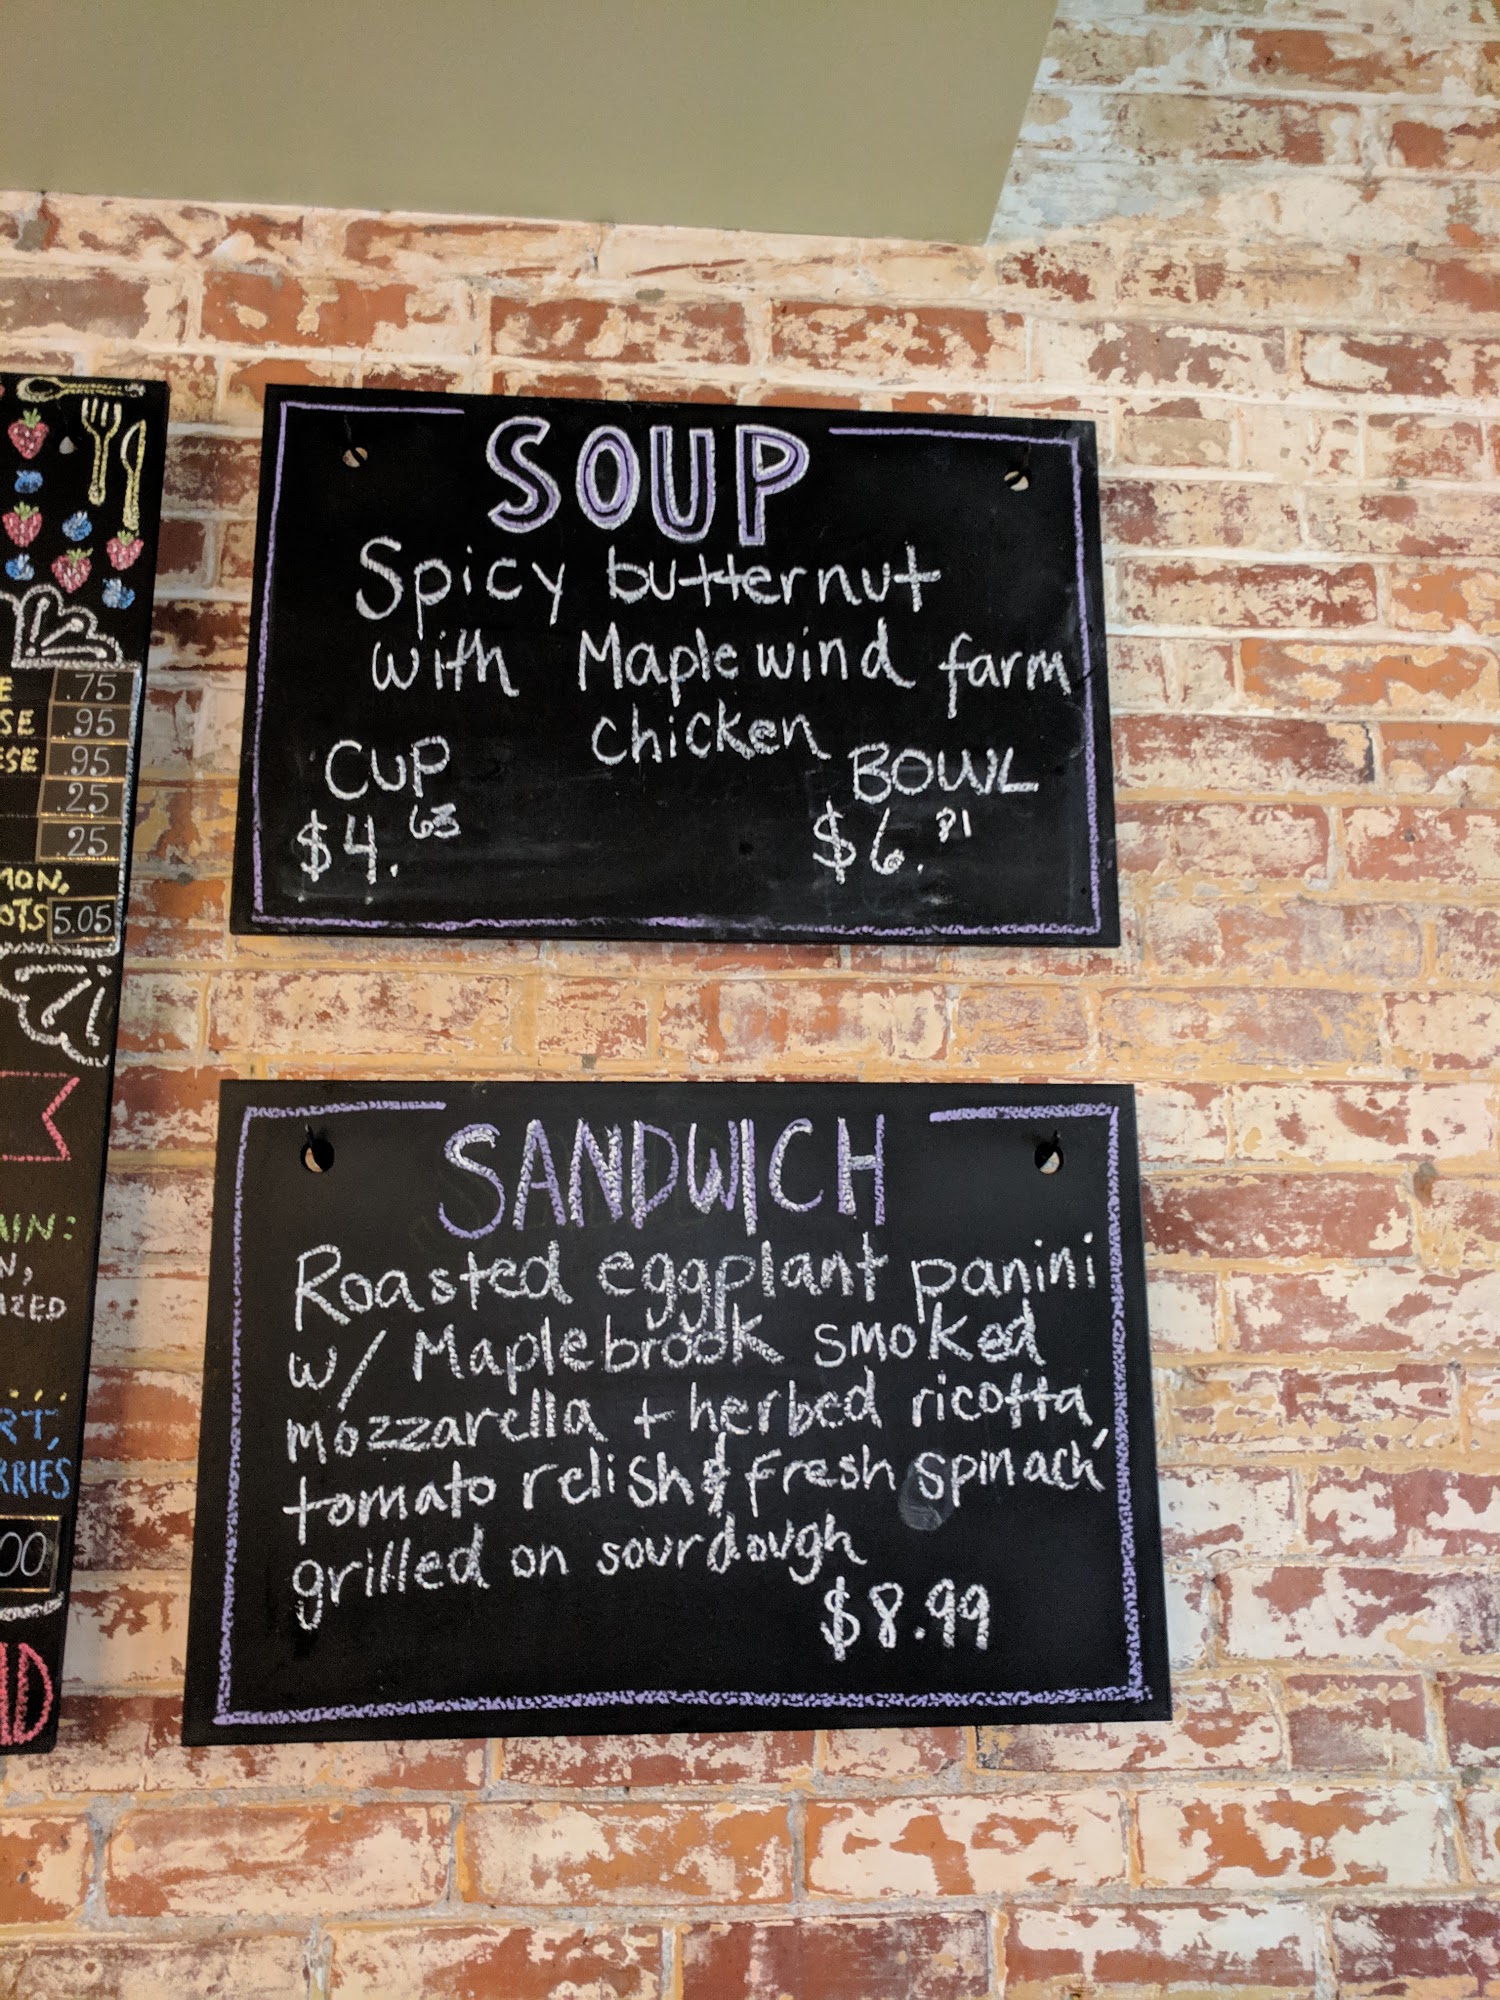 SOUP
Spicy butternut
with Maplewind farm
chicken
CUP
BOWL
$4.63
$6.81
SANDWICH
Roasted eggplant panini
w/ Maplebrook smoked
mozzarella + herbed ricotta,
tomato relish & fresh spinach
grilled on sourdough
$8.99
E .75
SE .95
ESE .95
.25
.25
MON,
OTS 5.05
AIN:
N,
IZED
RT,
RRIES
00